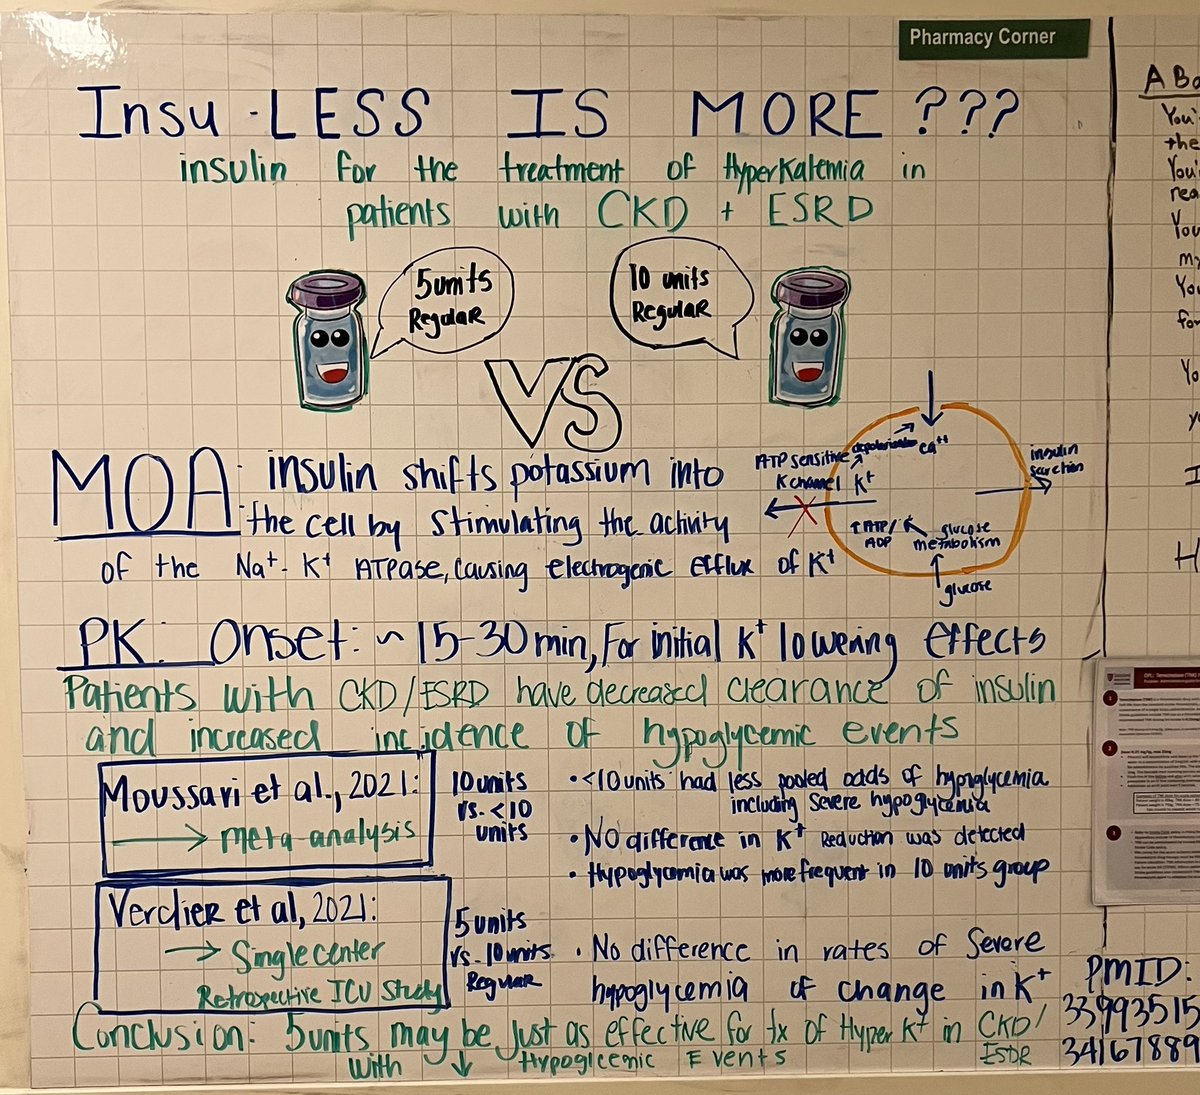 Pharmacy Corner
Insu-LESS IS MORE???
insulin for the treatment of Hyperkalemia in
patients with CKD + ESRD
5units
Regular
10 units
Regular
VS
MOA: insulin shifts potassium into
the cell by stimulating the activity
of the Na+-K+ ATPase, causing electrogenic efflux of K+
ATP sensitive
K channel
K+
Ca++
insulin
secretion
↑ATP/
ADP
glucose
metabolism
glucose
PK: Onset: ~15-30min, For initial K+ lowering effects
Patients with CKD/ESRD have decreased clearance of insulin
and increased incidence of hypoglycemic events
Moussavi et al., 2021:
→ meta-analysis
10units
vs. <10
units
• <10units had less pooled odds of hypoglycemia
including severe hypoglycemia
• NO difference in K+ Reduction was detected
• Hypoglycemia was more frequent in 10 units group
Verdier et al, 2021:
→ Single center
Retrospective ICU Study
5units
vs-10units
Regular
• No difference in rates of Severe
hypoglycemia of change in K+
Conclusion: 5units may be just as effective for tx of Hyper K+ in CKD/
ESDR
with ↓ Hypoglcemic Events
PMID:
33993515
34167889
A Bo
You'
the
You'
rea
You
my
You
for
Yo
y
I
H